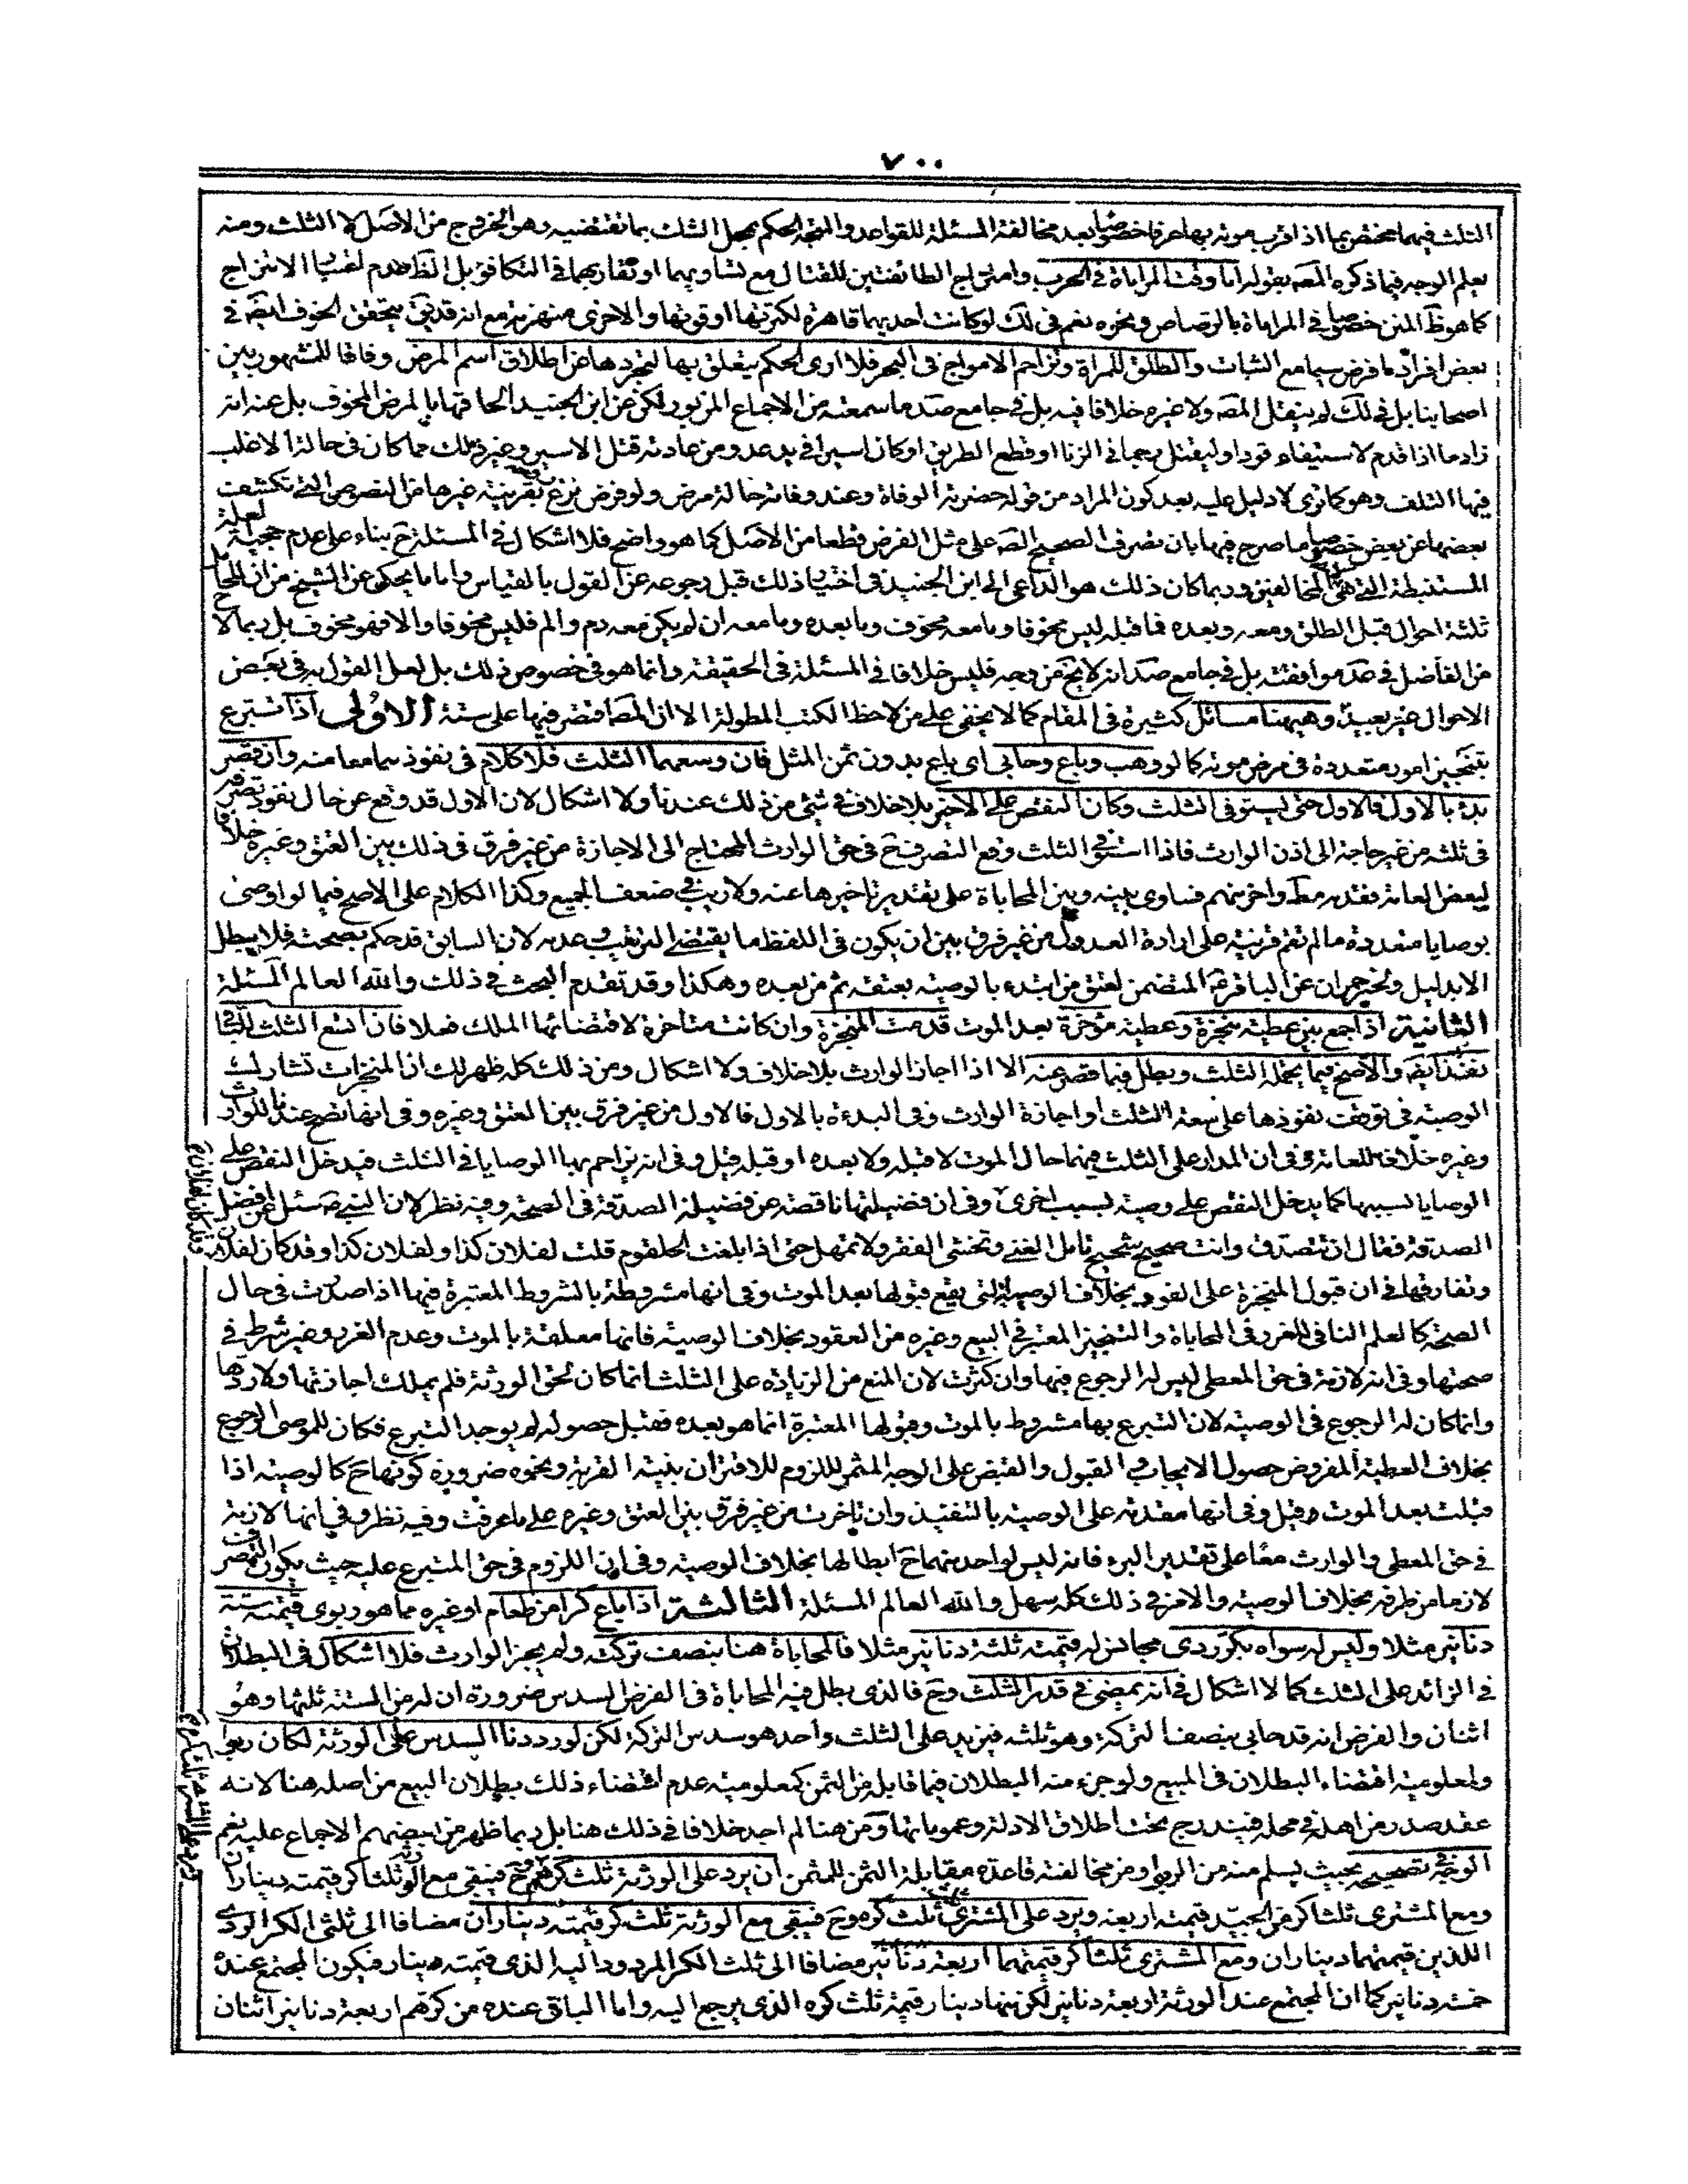 ٧٠٠
الثلث فيهما مختص بما اذا قرب موته بها عرفا خصوصا بعد مخالفة المسئلة للقواعد والمتجه الحكم بمحل الشك بما تقتضيه وهو الخروج من الاصل لا الثلث ومنه
يعلم الوجه فيما ذكره المصه بقوله اما وقت المراماة في الحرب وامتزاج الطائفتين للقتال مع تساويهما او تقاربهما في التكافؤ بل الظ عدم اعتبار الامتزاج
كما هو ظ المتن خصوصا في المراماة بالرصاص ونحوه نعم في لك لو كانت احديهما قاهرة لكثرتها او قوتها والاخرى منهزمة مع انه قد يتحقق الخوف ايضه في
بعض افراد ما فرض سيما مع الثبات والطلق للمراة وتزاحم الامواج في البحر فلا ارى الحكم يتعلق بها لتجردها عن اطلاق اسم المرض وفاقا للمشهور بين
اصحابنا بل في لك لم ينقل المصه ولا غيره خلافا فيه بل في جامع صد ما سمعته من الاجماع المزبور لكن عن ابن الجنيد الحاقها بالمرض المخوف بل عنه انه
زاد ما اذا قدم لاستيفاء قود او ليقتل رجما في الزنا او قطع الطريق او كان اسيرا في يد عدو من عادته قتل الاسير وغير ذلك مما كان في حالة الاغلب
فيها التلف وهو كما ترى لا دليل عليه بعد كون المراد من قوله حضرته الوفاة وعند وفاته حالة مرض ولو فرض نزع بقرينة غيرها من النصوص التي تكشفت
بعضها عن بعض خصوصا ما صرح فيها بان تصرف الصحيح الصه على مثل الفرض قطعا من الاصل كما هو واضح فلا اشكال في المسئلة ح بناء على عدم حجية لعلة
المستنبطة التي هي المخالفين وربما كان ذلك هو الداعي الى ابن الجنيد في اختيار ذلك قبل رجوعه عن القول بالقياس واما ما يحكى عن الشيخ من ان للحامل
ثلثة احوال قبل الطلق ومعه وبعده فما قبله ليس مخوفا وما معه مخوف وما بعده وما معه ان لم يكن معه دم والم فليس مخوفا والا فهو مخوف بل ربما لاح
من الفاضل في عد موافقته بل في جامع صد انه لا يخ من وجه فليس خلافا في المسئلة في الحقيقة وانما هو في خصوص ذلك بل لعل القول به في بعض
الاحوال غير بعيد وهيهنا مسائل كثيرة في المقام كما لا يخفى على من لاحظ الكتب المطولة الا ان المصه اقتصر فيها على ستة الاولى اذا تبرع
بتنجيز امور متعددة في مرض موته كما لو وهب وباع وحابى اى باع بدون ثمن المثل فان وسعهما الثلث فلا كلام في نفوذ ها معا منه وان قصر
بدء بالاول فالاول حتى يستوفى الثلث وكان النقص على الاخير بلا خلاف في شئ من ذلك عندنا ولا اشكال لان الاول قد وقع عن حال نفوذ تصرفه
في ثلثه من غير حاجة الى اذن الوارث فاذا استوفى الثلث وقع التصرف ح في حق الوارث المحتاج الى الاجازة من غير فرق في ذلك بين العتق وغيره خلافا
لبعض العامة فقدمه مط واخر منهم فساوى بينه وبين المحاباة على تقدير تاخيرها عنه ولا ريب في ضعف الجميع وكذا الكلام على الاصح فيما لو اوصى
بوصايا متعددة ما لم تقم قرينة على ارادة العدول من غير فرق بين ان يكون في اللفظ ما يقتضى الترتيب وعدمه لان السابق قد حكم بصحته فلا يبطل
الا بدليل وخبر حمران عن الباقر ع المتضمن لعتق من ابتدء بالوصية بعتقه ثم من بعده وهكذا وقد تقدم البحث في ذلك والله العالم المسئلة
الثانية اذا جمع بين عطية منجزة وعطية مؤخرة بعد الموت قدمت المنجزة وان كانت متاخرة لاقتضائها الملك فعلا فان اتسع الثلث للباقى
نفذ ايضه والا صح فيما يحمله الثلث وبطل فيما قصر عنه الا اذا اجاز الوارث بلا خلاف ولا اشكال ومن ذلك كله ظهر لك ان المنجزات تشارك
الوصية في توقف نفوذها على سعة الثلث او اجازة الوارث وفي البدءة بالاول فالاول من غير فرق بين العتق وغيره وفي انها تصح عندنا للوارث
وغيره خلافا للعامة وفي ان المدار على الثلث فيهما حال الموت لا قبله ولا بعده او قبله قبل وفي انه تزاحم بها الوصايا في الثلث فيدخل النقص على
الوصايا بسببها كما يدخل النقص على وصية بسبب اخرى وفي ان فضيلتها ناقصة عن فضيلة الصدقة في الصحة وفيه نظر لان النبي ص سئل عن افضل
الصدقة فقال ان تتصدق وانت صحيح شحيح تامل الغنى وتخشى الفقر ولا تمهل حتى اذا بلغت الحلقوم قلت لفلان كذا ولفلان كذا وقد كان لفلان
وتفارقها في ان قبول المنجزة على الفور بخلاف الوصية التي يقع قبولها بعد الموت وفي انها مشروطة بالشروط المعتبرة فيها اذا صدرت في حال
الصحة كالعلم النافي للغرر في المحاباة والتنجيز المعتبر في البيع وغيره من العقود بخلاف الوصية فانها معلقة بالموت وعدم الغرر غير شرط في
صحتها وفي انه لازمة في حق المعطى ليس له الرجوع فيها وان كثرت لان المنع من الزيادة على الثلث انما كان لحق الورثة فلم يملك اجازتها ولا ردها
وانما كان له الرجوع في الوصية لان التبرع بها مشروط بالموت وقبولها المعتبرة انما هو بعده فقبل حصوله لم يوجد التبرع فكان للموصى الرجوع
بخلاف العطية المفروض حصول الايجاب والقبول والقبض على الوجه المثمر للزوم للاقتران بنية القربة ونحوه ضرورة كونها ح كالوصية اذا
قبلت بعد الموت وقبل وفي انها مقدمة على الوصية بالتنفيذ وان تاخرت من غير فرق بين العتق وغيره على ما عرفت وفيه نظر وفي انها لازمة
في حق المعطى والوارث معا على تقدير البرء فانه ليس لواحد منهما ح ابطالها بخلاف الوصية وفي ان اللزوم في حق المتبرع عليه حيث يكون التصرف
لازما من طرفه بخلاف الوصية والامر في ذلك كله سهل والله العالم المسئلة الثالثة اذا باع كرا من طعام او غيره مما هو ربوى قيمته ستة
دنانير مثلا وليس له سواه بكر ردى مجانس له قيمته ثلثة دنانير مثلا فالمحاباة هنا بنصف تركته ولم يجز الوارث فلا اشكال في البطلان
في الزائد على الثلث كما لا اشكال في انه يمضى في قدر الثلث وح فالذى بطل فيه المحاباة في الفرض السدس ضرورة ان له من الستة ثلثها وهو
اثنان والفرض انه قد حابى بنصف التركة وهو ثلثه فيزيد على الثلث واحد هو سدس التركة لكن لو رددنا السدس على الورثة لكان ربوا
ولمعلومية اقتضاء البطلان في المبيع ولو جزء منه البطلان فيما قابله من الثمن كمعلومية عدم اقتضاء ذلك بطلان البيع من اصله هنا لانه
عقد صدر من اهله في محله فيندرج تحت اطلاق الادلة وعموماتها ومن هنا لم اجد خلافا في ذلك هنا بل ربما ظهر من بعضهم الاجماع عليه نعم
الوجه في تصحيحه بحيث يسلم منه من الربوا ومن مخالفة قاعدة مقابلة الثمن للمثمن ان يرد على الورثة ثلث كرهم وح فيبقى مع الورثة ثلثا كر قيمته ديناران
ومع المشترى ثلثا كر من الجيد قيمته اربعة ويرد على المشترى ثلث كره وح فيبقى مع الورثة ثلث كر قيمته ديناران مضافا الى ثلثى الكر الردى
اللذين قيمتهما ديناران ومع المشترى ثلثا كر قيمتهما اربعة دنانير مضافا الى ثلث الكر المردود اليه الذى قيمته دينار فيكون المجتمع عنده
خمسة دنانير كما ان المجتمع عند الورثة اربعة دنانير لكن منها دينار قيمة ثلث كره الذى يرجع اليه واما الباقى عنده من كرهم اربعة دنانير اثنان